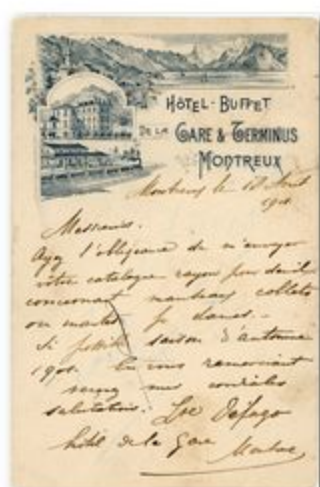 HÔTEL-BUFFET
DE LA GARE & TERMINUS
MONTREUX
Montreux le 18 Août
190
Messieurs.
Ayez l'obligeance de m'envoyer
votre catalogue rayon pour deuil
concernant manteaux collets
ou mantes p. dames. -
Si possible saison d'automne
1901. En vous remerciant
mes cordiales
salutations.
hôtel de la Gare
Montreux